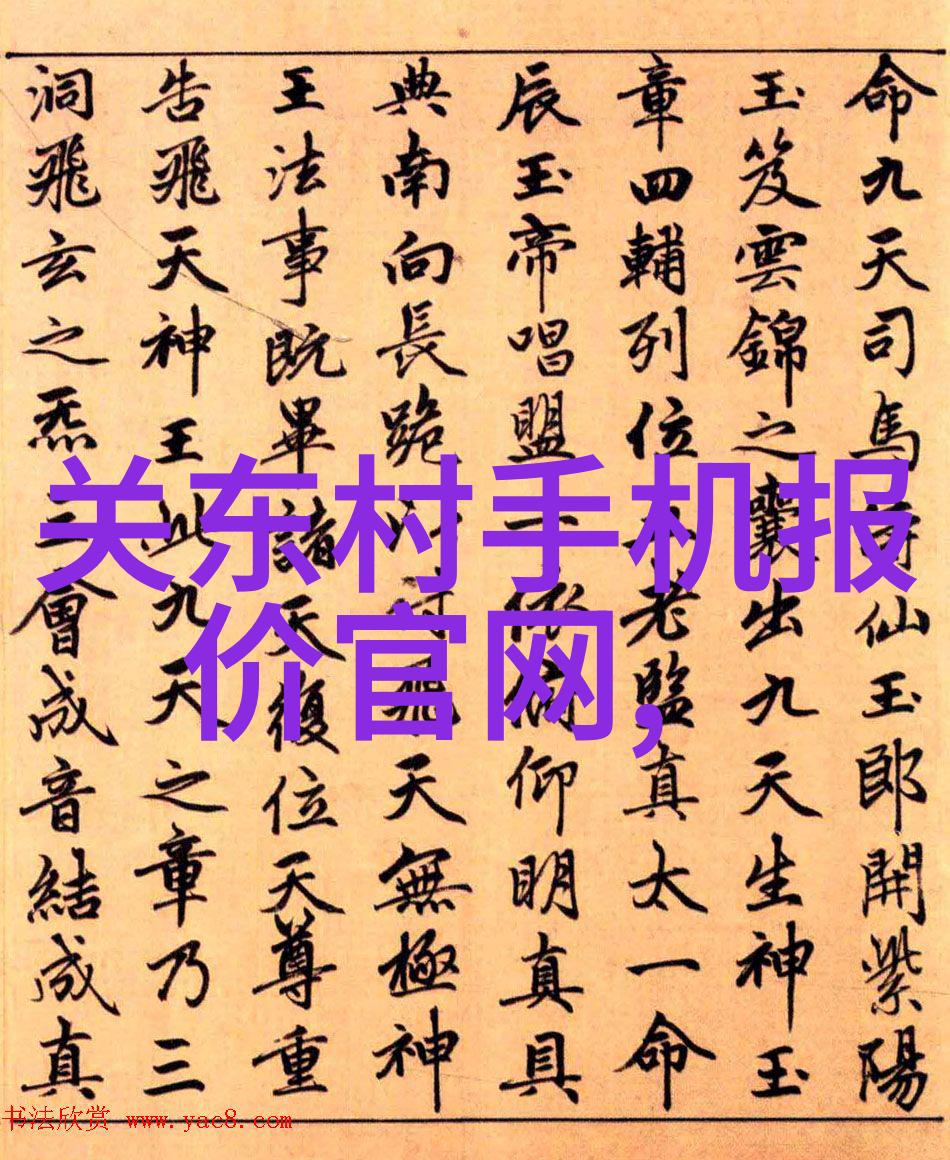 命九天司馬侍仙玉郎開紫陽
玉笈雲錦之囊出九天生神玉
章四輔列位老監真太一命
辰玉帝唱盟一依仰明真具
典南向長跪飛天無極神
王法事既畢諸天復位天尊重
告飛天神王此九天之章乃三
洞飛玄之炁三會成音結成真
关东村手机报
价官网,
书法欣赏 www.yac8.com